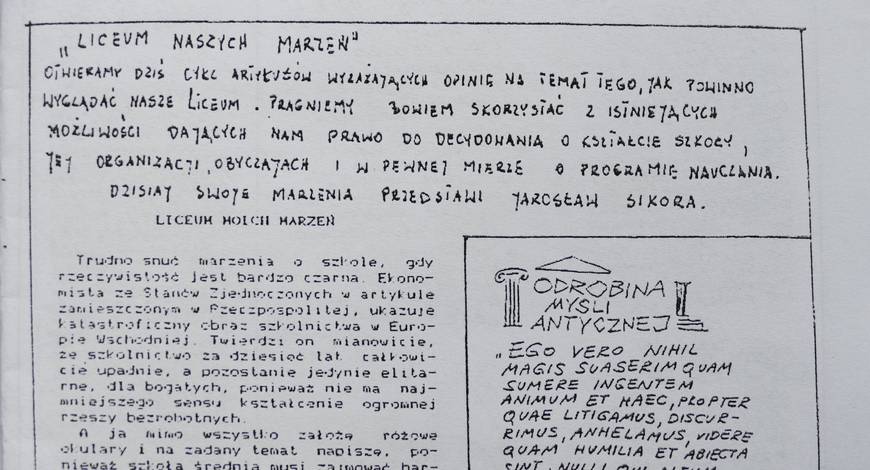 „LICEUM NASZYCH MARZEŃ”
OTWIERAMY DZIŚ CYKL ARTYKUŁÓW WYRAŻAJĄCYCH OPINIĘ NA TEMAT TEGO, JAK POWINNO
WYGLĄDAĆ NASZE LICEUM. PRAGNIEMY BOWIEM SKORZYSTAĆ Z ISTNIEJĄCYCH
MOŻLIWOŚCI DAJĄCYCH NAM PRAWO DO DECYDOWANIA O KSZTAŁCIE SZKOŁY,
JEJ ORGANIZACJI, OBYCZAJACH I W PEWNEJ MIERZE O PROGRAMIE NAUCZANIA.
DZISIAJ SWOJE MARZENIA PRZEDSTAWI JAROSŁAW SIKORA.
LICEUM MOICH MARZEŃ
Trudno snuć marzenia o szkole, gdy
rzeczywistość jest bardzo czarna. Ekono-
mista ze Stanów Zjednoczonych w artykule
zamieszczonym w Rzeczpospolitej, ukazuje
katastroficzny obraz szkolnictwa w Euro-
pie Wschodniej. Twierdzi on mianowicie,
że szkolnictwo za dziesięć lat całkowi-
cie upadnie, a pozostanie jedynie elita-
rne, dla bogatych, ponieważ nie ma naj-
mniejszego sensu kształcenie ogromnej
rzeszy bezrobotnych.
A ja mimo wszystko założę różowe
okulary i na zadany temat napiszę, po-
nieważ szkoła średnia musi zajmować bar-
ODROBINA
MYŚLI
ANTYCZNEJ
„EGO VERO NIHIL
MAGIS SUASERIM QUAM
SUMERE INGENTEM
ANIMUM ET HAEC, PROPTER
QUAE LITIGAMUS, DISCUR-
RIMUS, ANHELAMUS, VIDERE
QUAM HUMILIA ET ABIECTA
SINT, NULLI QUI ALIUM